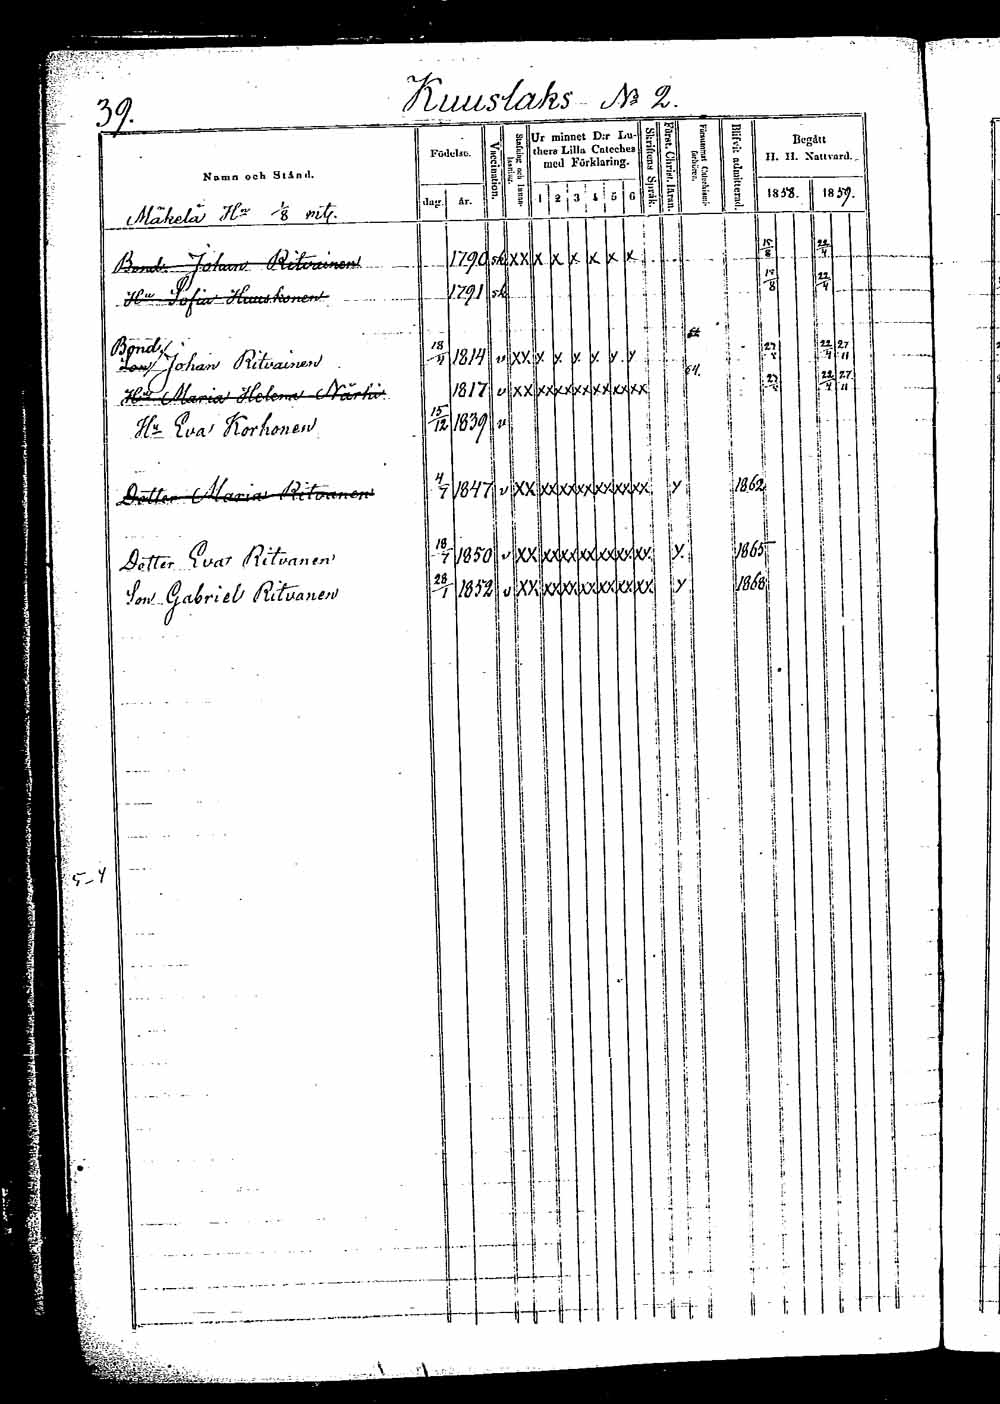 39.
Kuuslaks № 2.
Namn och Stånd.
Födelse.
dag.
år.
Vaccination.
Ur minnet D:r Lu-
thers Lilla Cateches
med Förklaring.
1 2 3 4 5 6
Skriftens Språk.
Först. Christ. läran.
Blifvit admitterad.
Begått
H. H. Nattvard.
1858. 1859.
Mäkelä Hn 1/8 mtl.
Bond. Johan Ritvainen 1790 sk XX X X X X X X 15/8 22/4
Hu Sofia Huuskonen 1791 sk 15/8 22/4
Bond.
Son Johan Ritvainen 18/4 1814 v XX X X X X X X 22/4 27/11
Hu Maria Helena Närhi 1817 v XX XX XX XX XX XX XX 64. 22/4 27/11
Hu Eva Korhonen 15/12 1839 v
Dotter Maria Ritvanen 4/7 1847 v XX XX XX XX XX XX XX y 1862
Dotter Eva Ritvanen 18/7 1850 v XX XX XX XX XX XX XX y 1865
Son Gabriel Ritvanen 28/1 1852 v XX XX XX XX XX XX XX y 1868
5-4